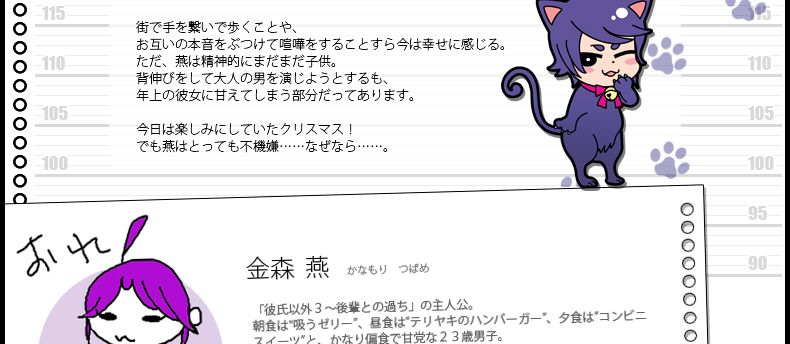 115
115
街で手を繋いで歩くことや、
お互いの本音をぶつけて喧嘩をすることすら今は幸せに感じる。
ただ、燕は精神的にまだまだ子供。
110
110
背伸びをして大人の男を演じようとするも、
年上の彼女に甘えてしまう部分だってあります。
105
105
今日は楽しみにしていたクリスマス！
でも燕はとっても不機嫌……なぜなら……。
100
100
95
90
おれ
金森 燕 かなもり つばめ
「彼氏以外３～後輩との過ち」の主人公。
朝食は“吸うゼリー”、昼食は“テリヤキのハンバーガー”、夕食は“コンビニ
スイーツ”と、かなり偏食で甘党な２３歳男子。